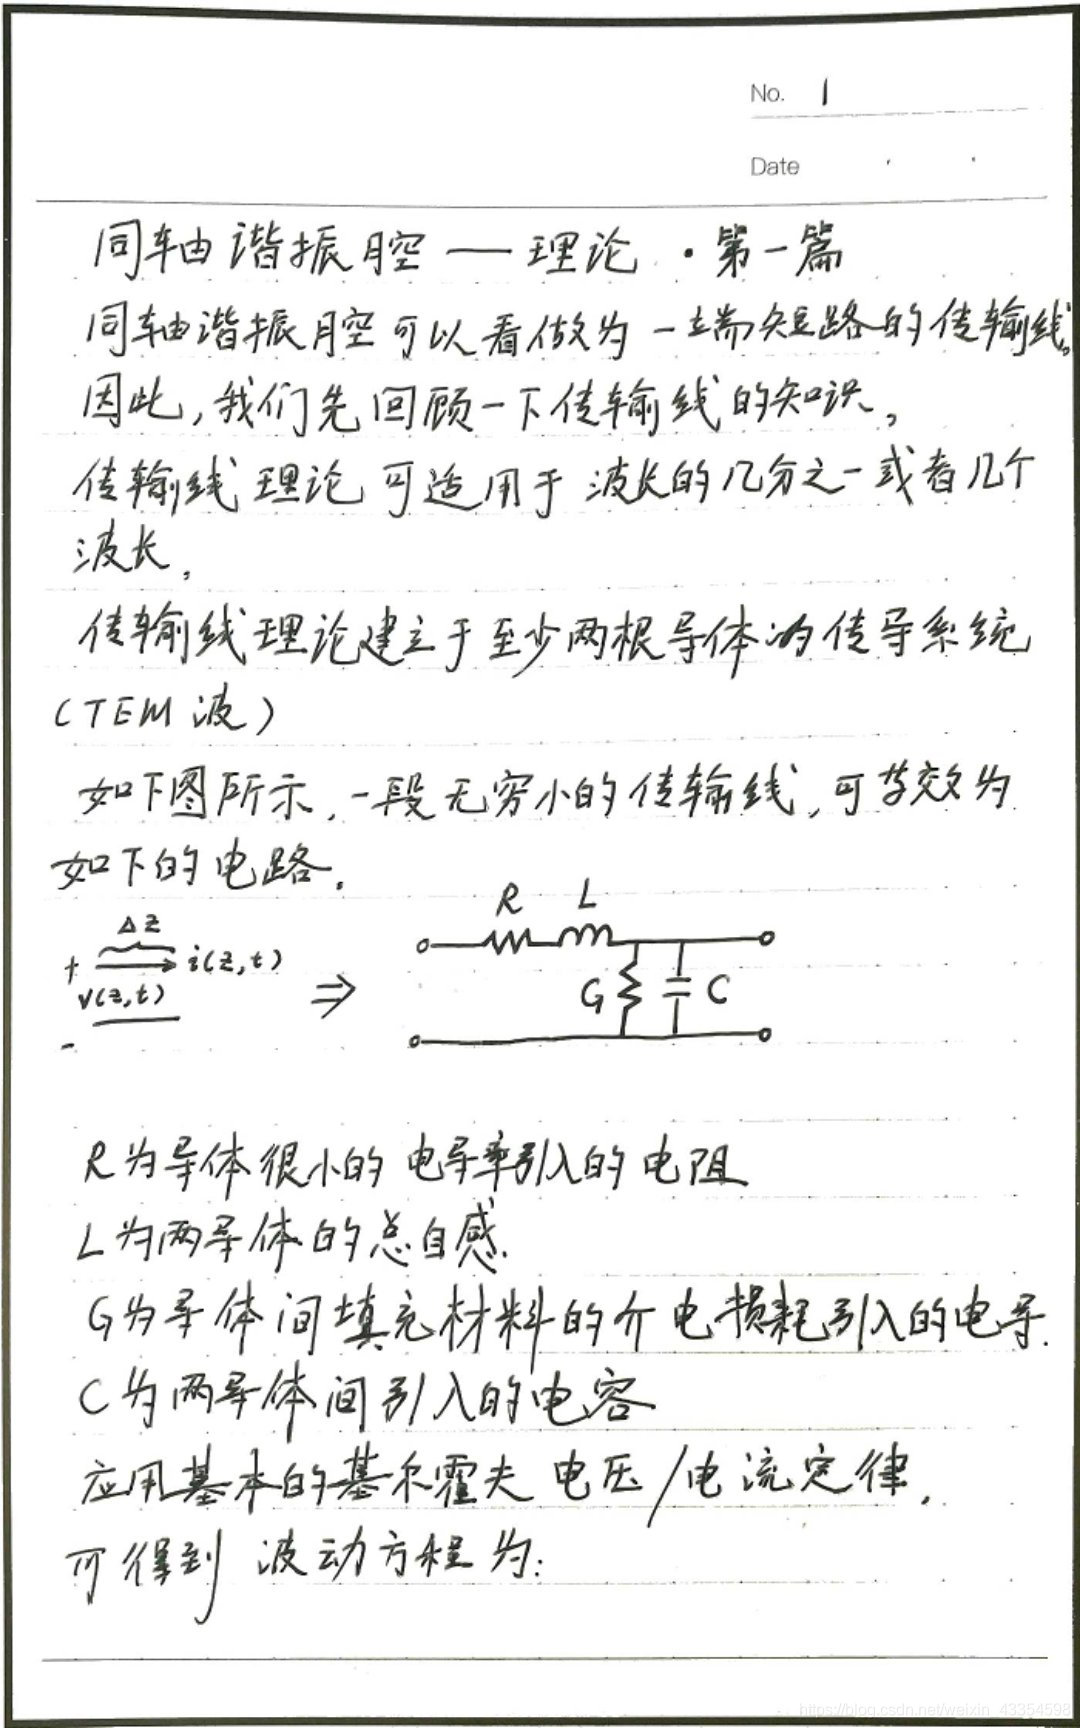 No. 1
Date
同轴谐振腔——理论·第一篇
同轴谐振腔可以看做为一端短路的传输线。
因此,我们先回顾一下传输线的知识。
传输线理论可适用于波长的几分之一或者几个
波长。
传输线理论建立于至少两根导体的传导系统
(TEM波)
如下图所示,一段无穷小的传输线,可等效为
如下的电路.
R L
Δz
+ i(z,t)
v(z,t) ⇒ G C
-
R为导体很小的电导率引入的电阻
L为两导体的总自感.
G为导体间填充材料的介电损耗引入的电导.
C为两导体间引入的电容
应用基本的基尔霍夫电压/电流定律,
可得到波动方程为:
https://blog.csdn.net/weixin_43354598